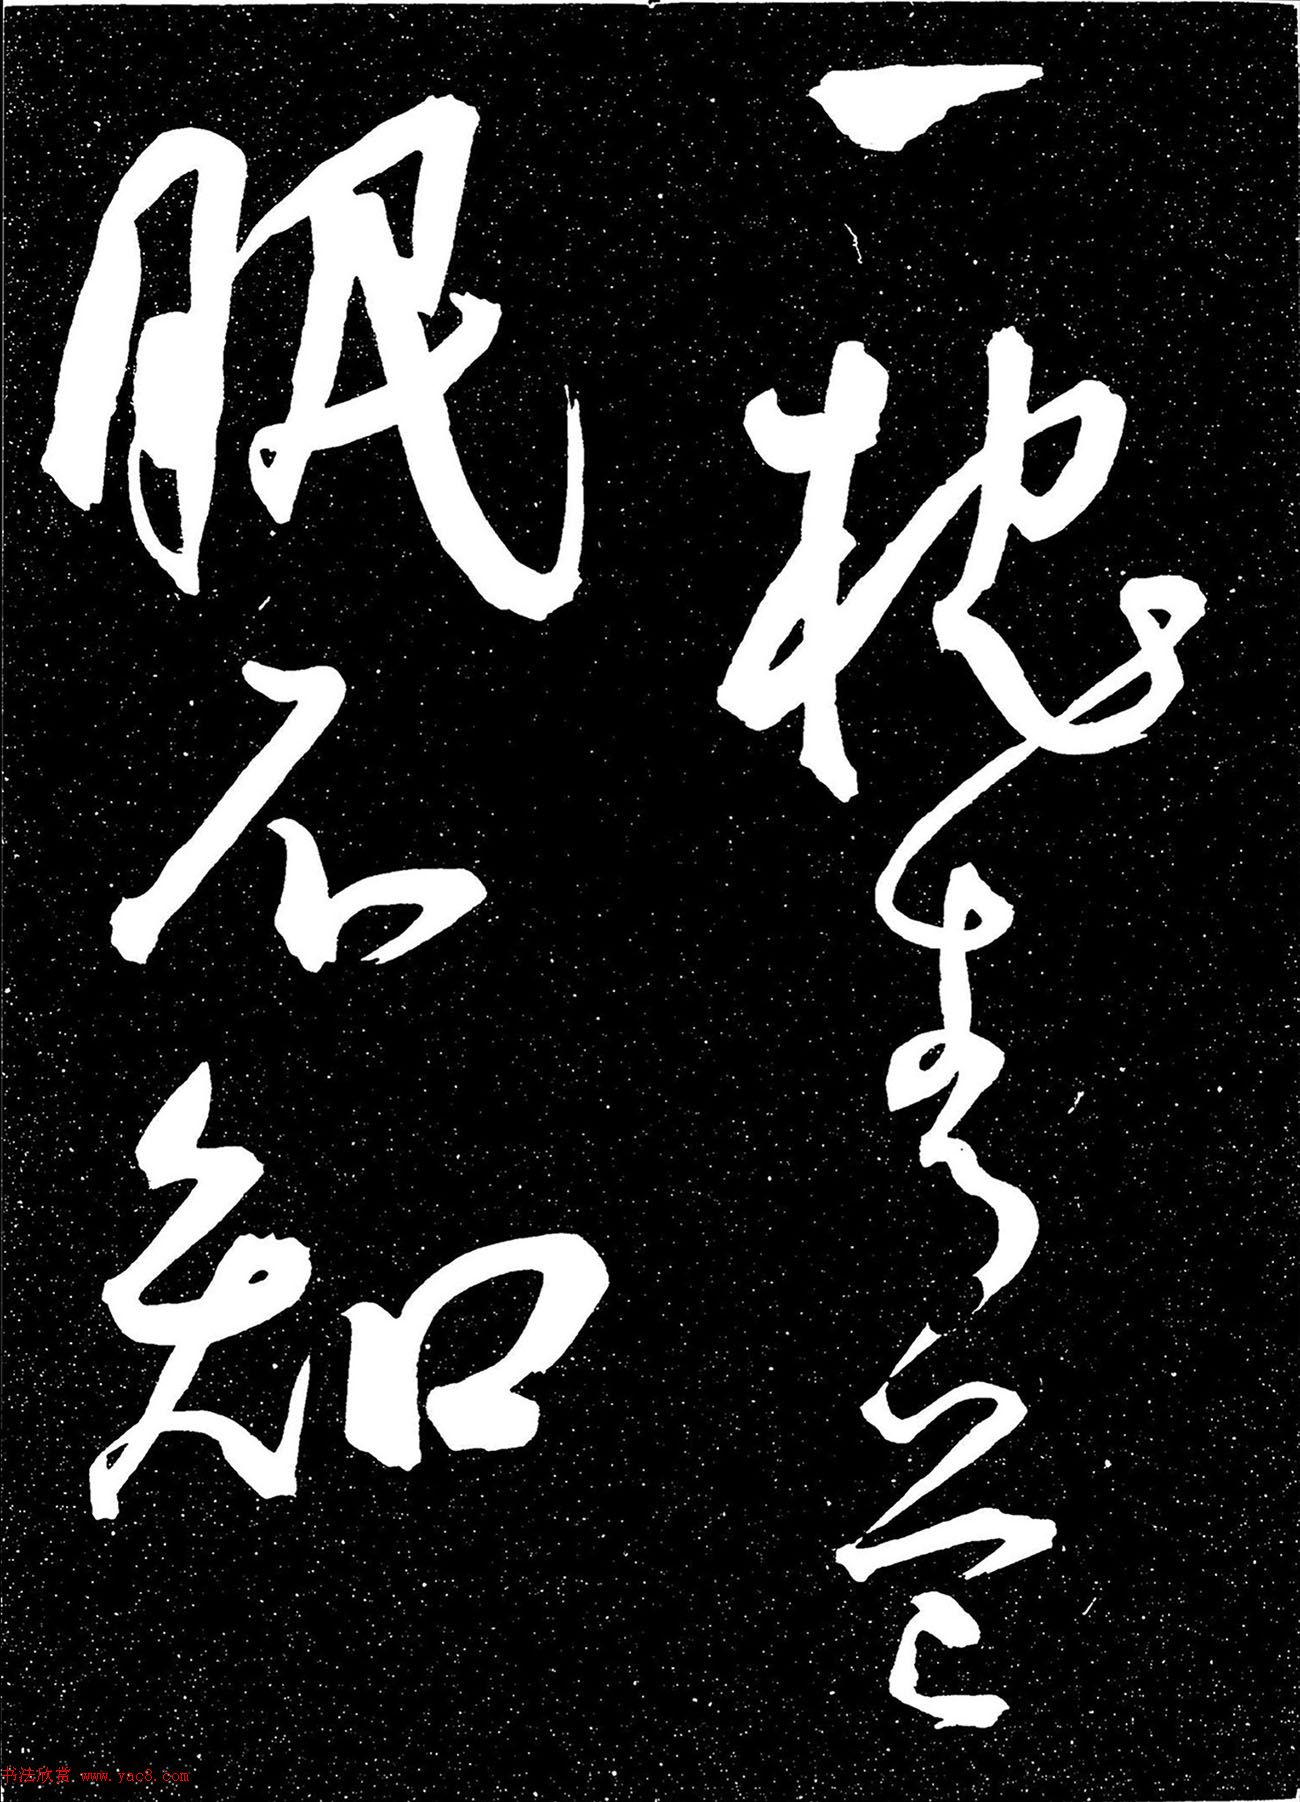 一枕青
眠不知
书法欣赏 www.yac8.com